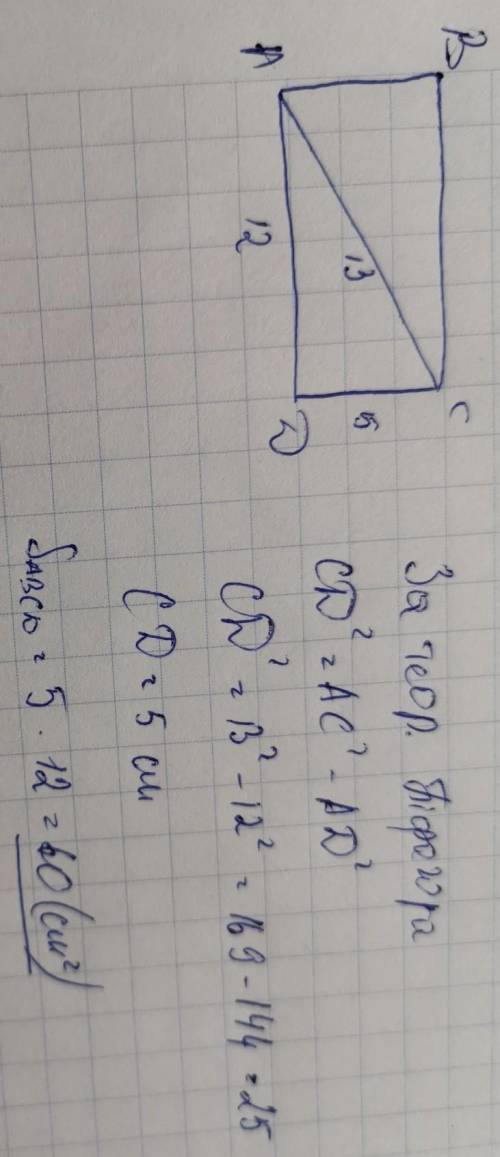 B
C
A
D
13
5
12
За теор. Піфагора
CD² = AC² - AD²
CD² = 13² - 12² = 169 - 144 = 25
CD = 5 см
S ABCD = 5 · 12 = 60 (см²)